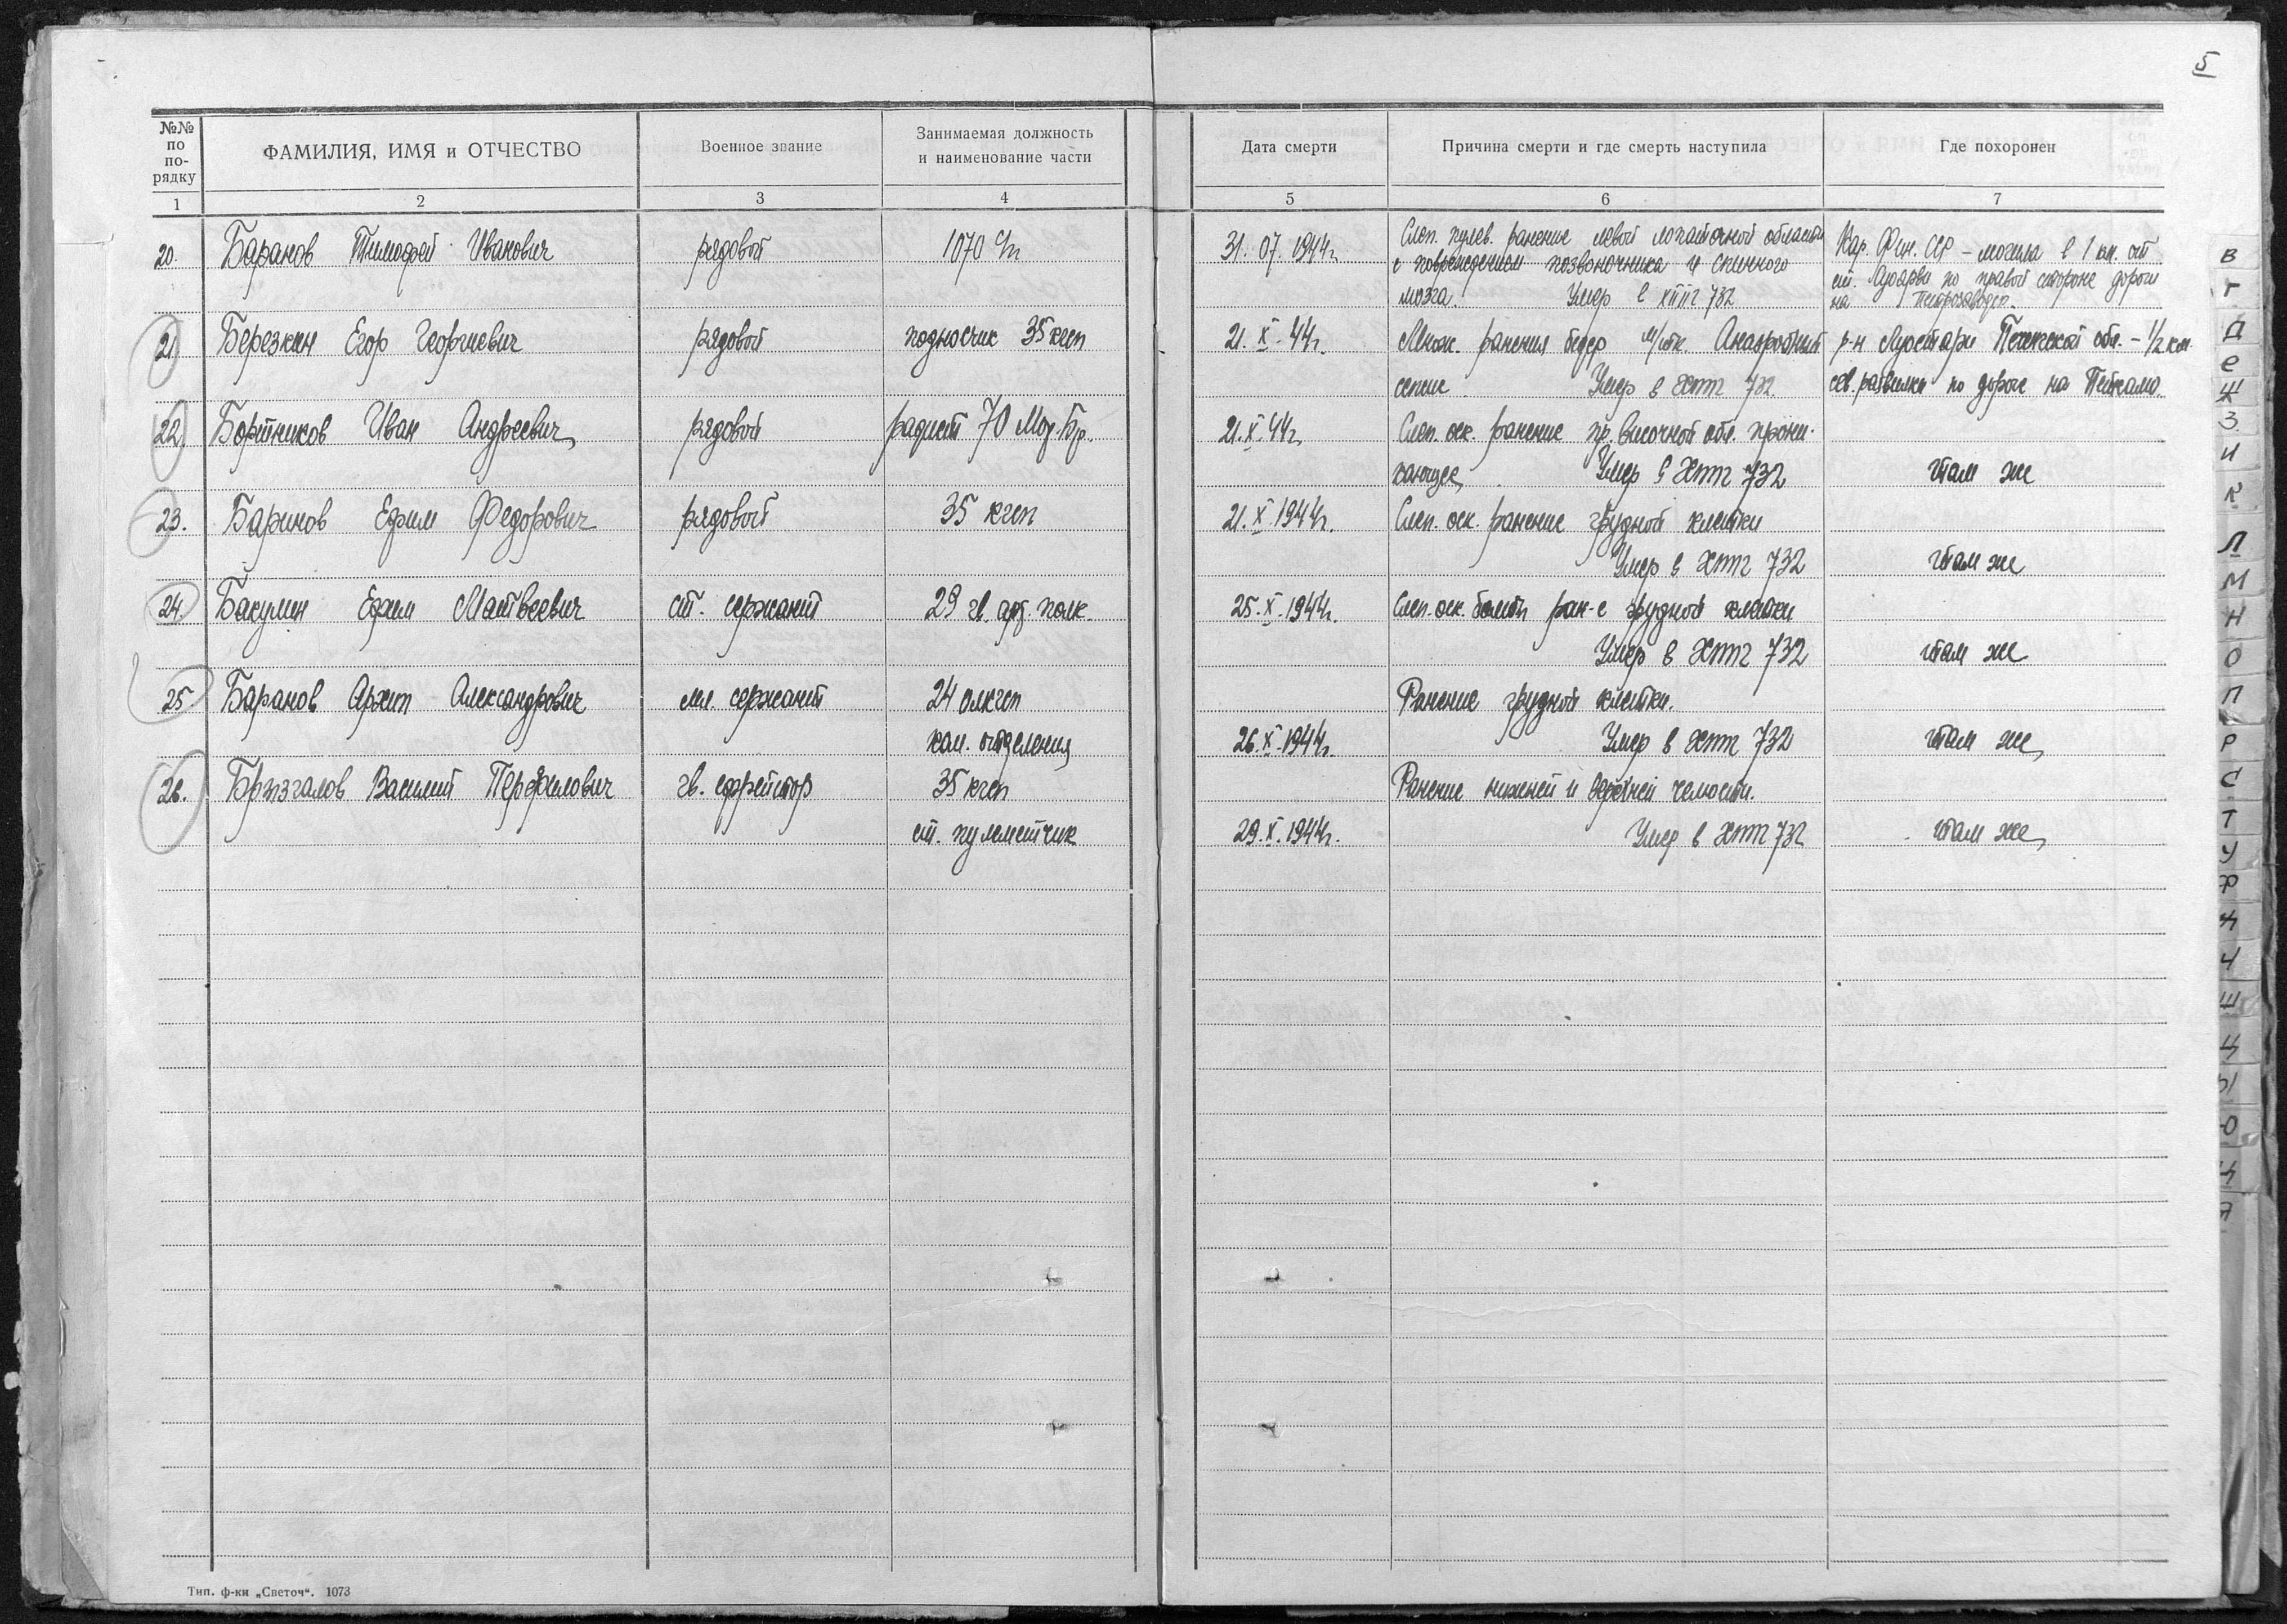 5
№№ по по-рядку
ФАМИЛИЯ, ИМЯ и ОТЧЕСТВО
Военное звание
Занимаемая должность
и наименование части
Дата смерти
Причина смерти и где смерть наступила
Где похоронен
1 2 3 4 5 6 7
20. Баранов Тимофей Иванович рядовой 1070 с/п 31.07.1944г. Слеп. пулев. ранение левой лопаточной области Кар. Фин. ССР – могила в 1 км. от
с повреждением позвоночника и спинного ст. по правой стороне дороги
мозга. Умер в хппг 732 на Петрозаводск.
21 Березкин Егор Георгиевич рядовой подносчик 35 кгсп 21.X.44г. Множ. ранения бедер м/тк. Анаэробный р-н Луостари Печенгской обл. – 1/2 км
сепсис. Умер в хппг 732. сев. развилки по дороге на Петсамо.
22. Бортников Иван Андреевич рядовой радист 70 Мор. Бр. 21.X.44г. Слеп. оск. ранение пр. височной обл. прони-
кающее. Умер в хппг 732 там же
23. Баринов Ефим Федорович рядовой 35 кгсп 21.X.1944г. Слеп. оск. ранение грудной клетки
Умер в хппг 732 там же
24. Бакулин Ефим Матвеевич ст. сержант 29 гв. арт. полк. 25.X.1944г. Слеп. оск. ран-е грудной клетки
Умер в хппг 732 там же
25. Баранов Архип Александрович мл. сержант 24 олкгсп Ранение грудной клетки.
ком. отделения 26.X.1944г. Умер в хппг 732 там же
26. Брызгалов Василий Перфилович гв. ефрейтор 35 кгсп Ранение нижней и верхней челюсти.
ст. пулеметчик 29.X.1944г. Умер в хппг 732 там же
В
Г
Д
Е
Ж
З
И
К
Л
М
Н
О
П
Р
С
Т
У
Ф
Ч
Ш
Тип. ф-ки „Светоч“. 1073